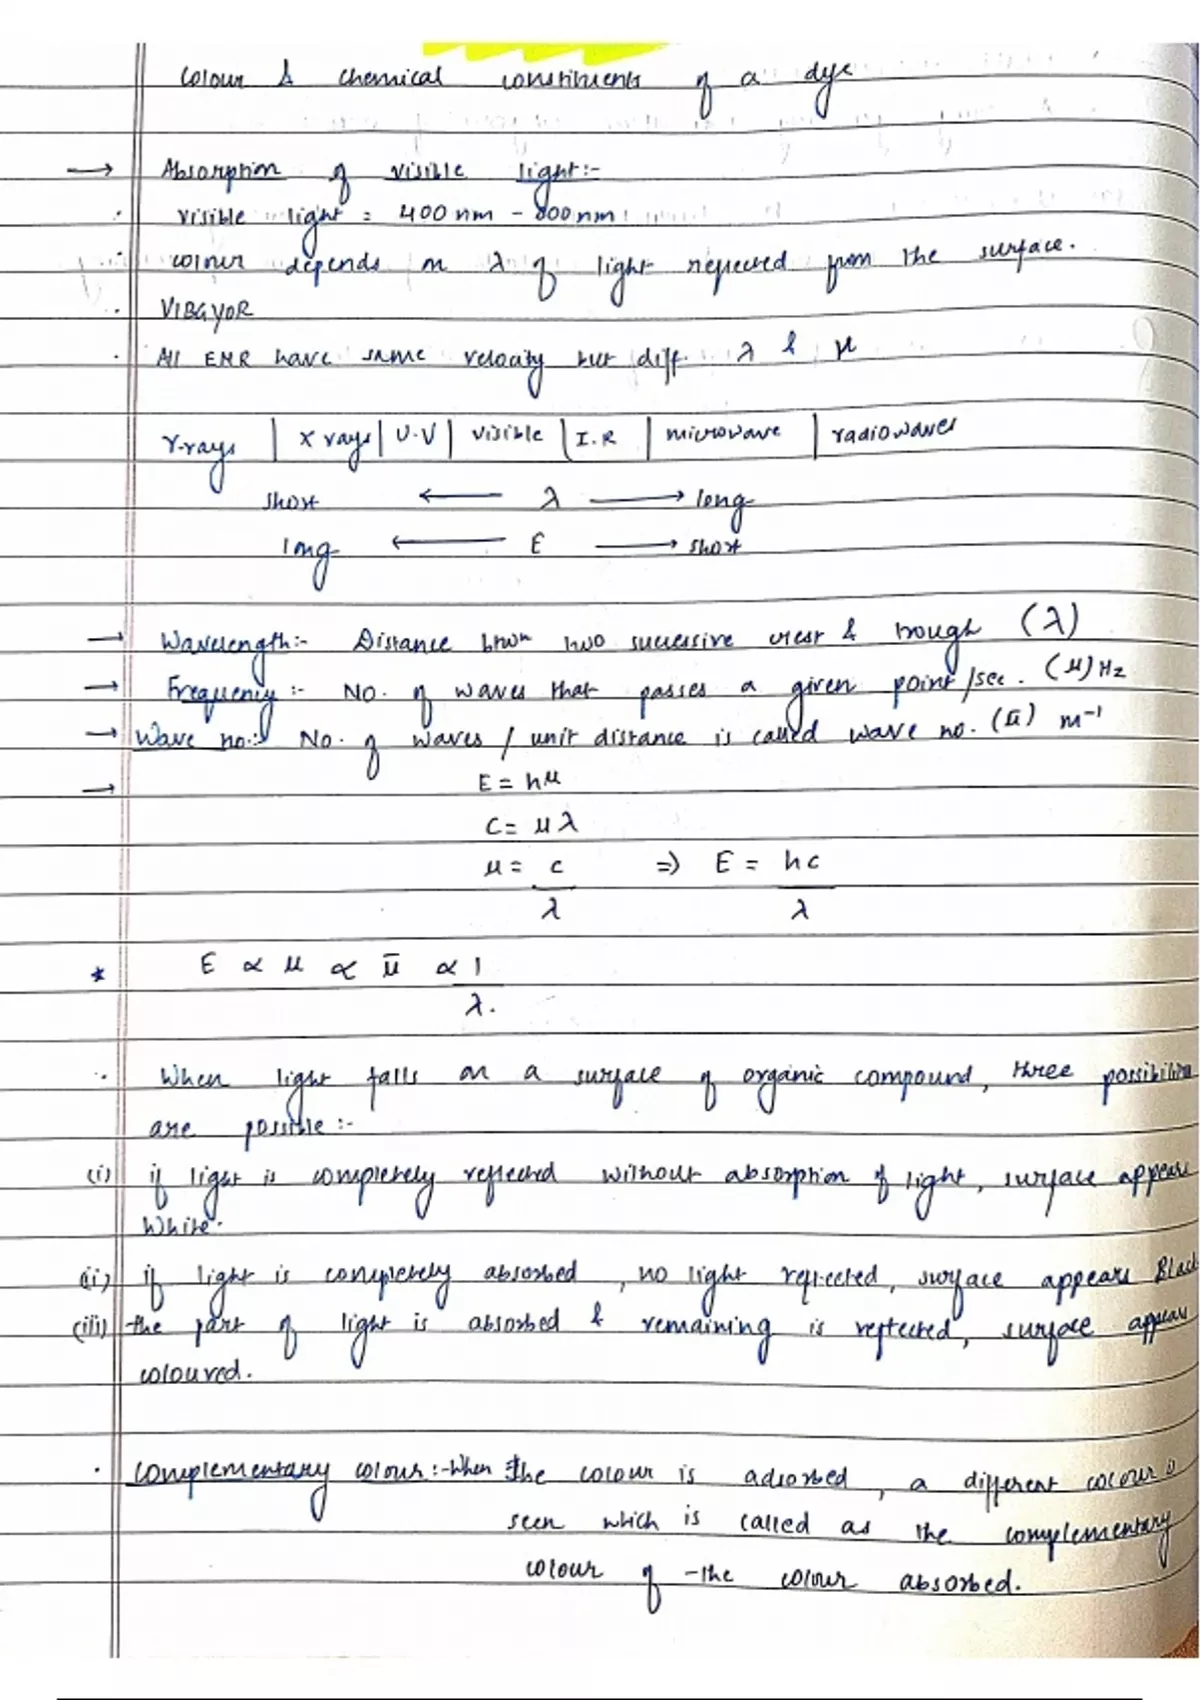 Colour & chemical constituents of a dye
→ Absorption of visible light:-
· visible light = 400 nm - 800 nm
· colour depends on λ of light reflected from the surface.
· VIBGYOR
· All EMR have same velocity but diff. λ & μ
γ-rays | X rays | U.V | visible | I.R | microwave | radiowaves
short ← λ → long
long ← E → short
→ Wavelength:- Distance btwn two successive crest & trough (λ)
→ Frequency :- No. of waves that passes a given point /sec. (μ) Hz
→ Wave no.:- No. of waves / unit distance is called wave no. (μ̄) m⁻¹
→ E = hμ
C = μλ
μ = c/λ ⇒ E = hc/λ
* E ∝ μ ∝ μ̄ ∝ 1/λ.
· When light falls on a surface of organic compound, three possibilities
are possible :-
(i) if light is completely reflected without absorption of light, surface appears
white.
(ii) if light is completely absorbed , no light reflected, surface appears Black
(iii) the part of light is absorbed & remaining is reflected, surface appears
coloured.
· Complementary colour :- When the colour is adsorbed , a different colour is
seen which is called as the complementary
colour of the colour absorbed.